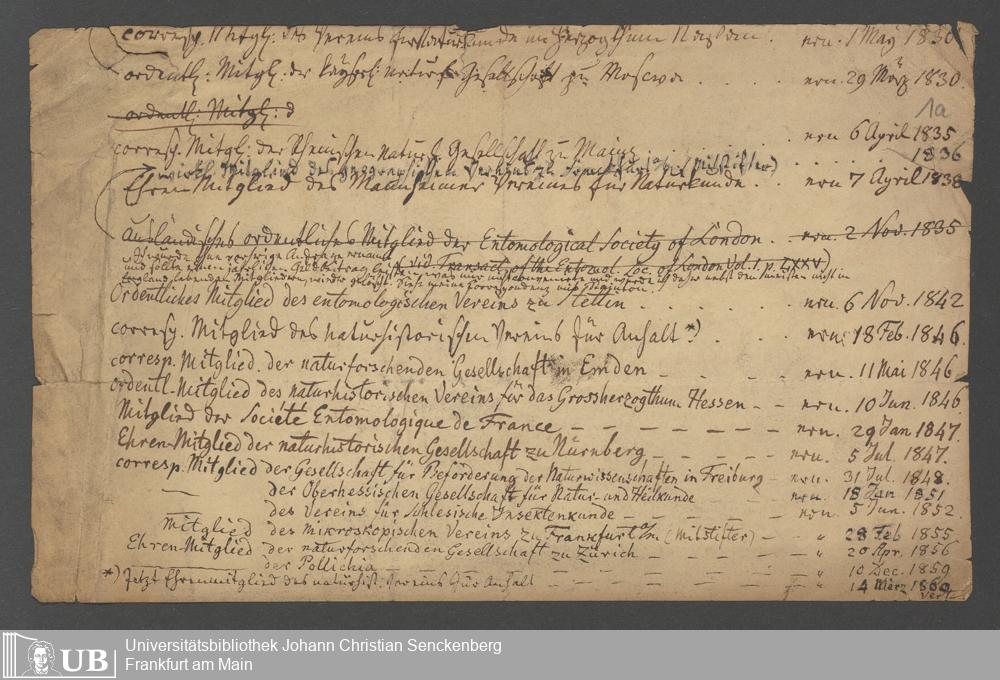 corresp. Mitgl: des Vereins für Naturkunde im Herzogthum Nassau. ern. 1 May 1830
ordentl: Mitgl: der Kayserl: naturf. Gesellschaft zu Moscwa . . . . ern. 29 März 1830.
ordentl: Mitgl: d
1a
corresp. Mitgl: der Rheinischen naturf. Gesellschaft zu Mainz . . . ern 6 April 1835
wirkl. Mitglied des geographischen Vereins zu Frankfurt (Mitstifter) . . . . 1836
Ehren Mitglied des Mannheimer Vereines für Naturkunde . . ern 7 April 1838
Ausländisches ordentliches Mitglied der Entomological Society of London . . ern. 2 Nov. 1835
(vid Transact. of the Entomol. Soc. of London Vol. 1. p. LXXV)
und sollte einen jährlichen Geldbeitrag leisten
Ordentliches Mitglied des entomologischen Vereins zu Stettin . . . . ern. 6 Nov. 1842
corresp. Mitglied des naturhistorischen Vereins für Anhalt *) . . . ern: 18 Feb. 1846.
corresp. Mitglied. der naturforschenden Gesellschaft in Emden – . – – ern. 11 Mai 1846
ordentl. Mitglied des naturhistorischen Vereins für das Grossherzogthum Hessen – – ern. 10 Jun. 1846
Mitglied der Societé Entomologique de France – – – – – – – ern. 29 Jan 1847.
Ehren-Mitglied der naturhistorischen Gesellschaft zu Nürnberg – – – – ern. 5 Jul. 1847.
corresp. Mitglied der Gesellschaft für Beförderung der Naturwissenschaften in Freiburg – ern. 31 Jul. 1848.
— der Oberhessischen Gesellschaft für Natur- und Heilkunde – – ern. 18 Jan 1851
des Vereins für schlesische Insektenkunde – – – – ern. 5 Jun. 1852.
Mitglied des mikroskopischen Vereins zu Frankfurt a/m (Mitstifter) – – " 28 Feb 1855
Ehren-Mitglied der naturforschenden Gesellschaft zu Zürich – – – – " 20 Apr. 1856
— der Pollichia – – – – – – – " 10 Dec. 1859
*) Jetzt Ehrenmitglied des naturhist. Vereins für Anhalt – – – – – " 14 März 1860
vert.
UB
Universitätsbibliothek Johann Christian Senckenberg
Frankfurt am Main